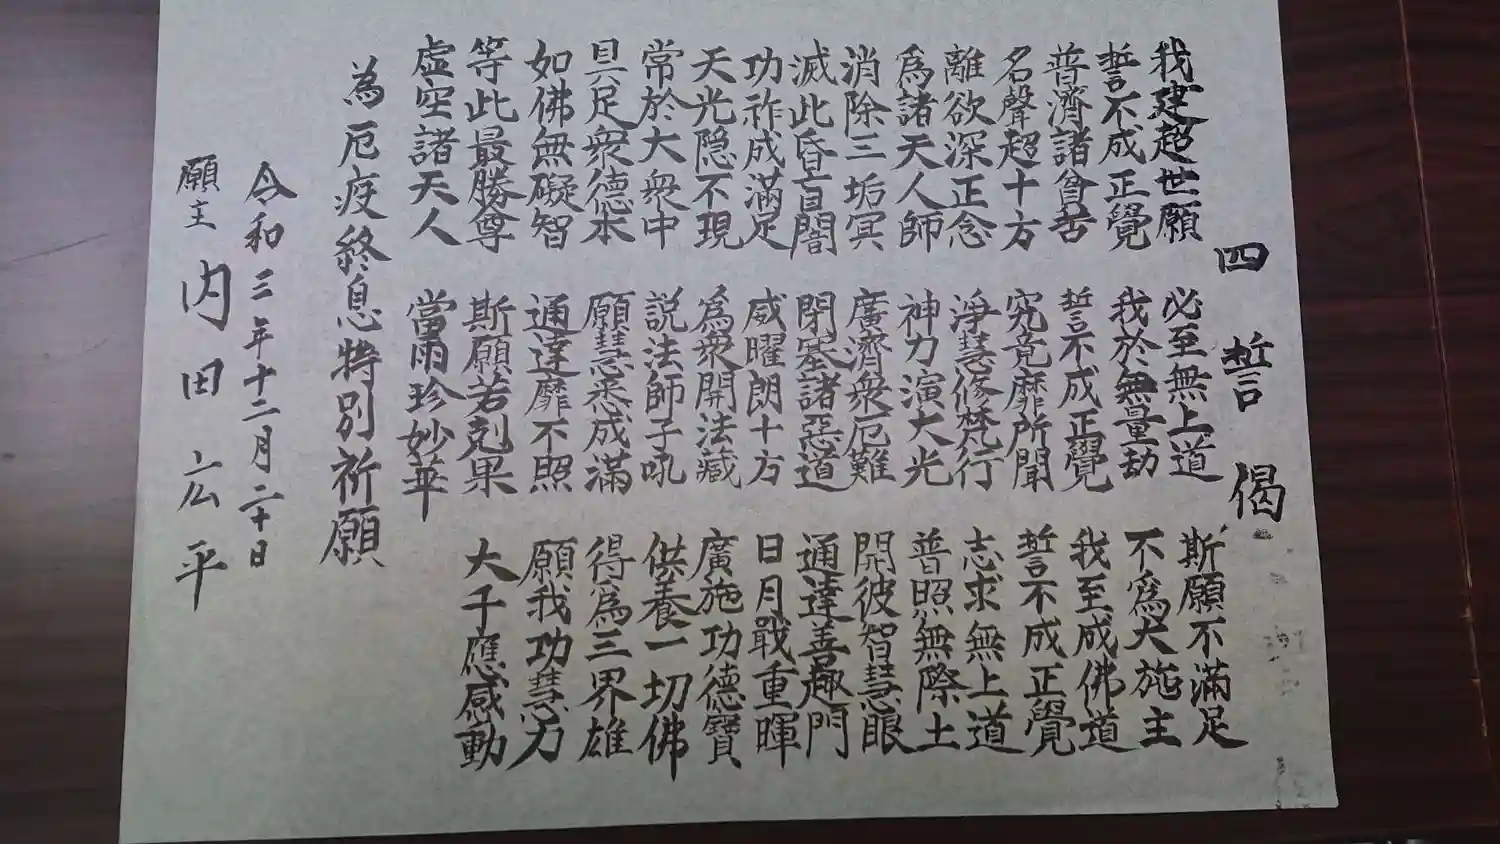 四誓偈
我建超世願 必至無上道 斯願不滿足
誓不成正覺 我於無量劫 不爲大施主
普濟諸貧苦 誓不成正覺 我至成佛道
名聲超十方 究竟靡所聞 誓不成正覺
離欲深正念 淨慧修梵行 志求無上道
爲諸天人師 神力演大光 普照無際土
消除三垢冥 廣濟衆厄難 開彼智慧眼
滅此昏盲闇 閉塞諸惡道 通達善趣門
功祚成滿足 威曜朗十方 日月戢重暉
天光隐不現 爲衆開法藏 廣施功德寶
常於大衆中 説法師子吼 供養一切佛
具足衆德本 願慧悉成滿 得爲三界雄
如佛無礙智 通達靡不照 願我功慧力
等此最勝尊 斯願若剋果 大千應感動
虚空諸天人 當雨珍妙華
為厄疫終息特別祈願
令和三年十二月二十日
願主 内田広平